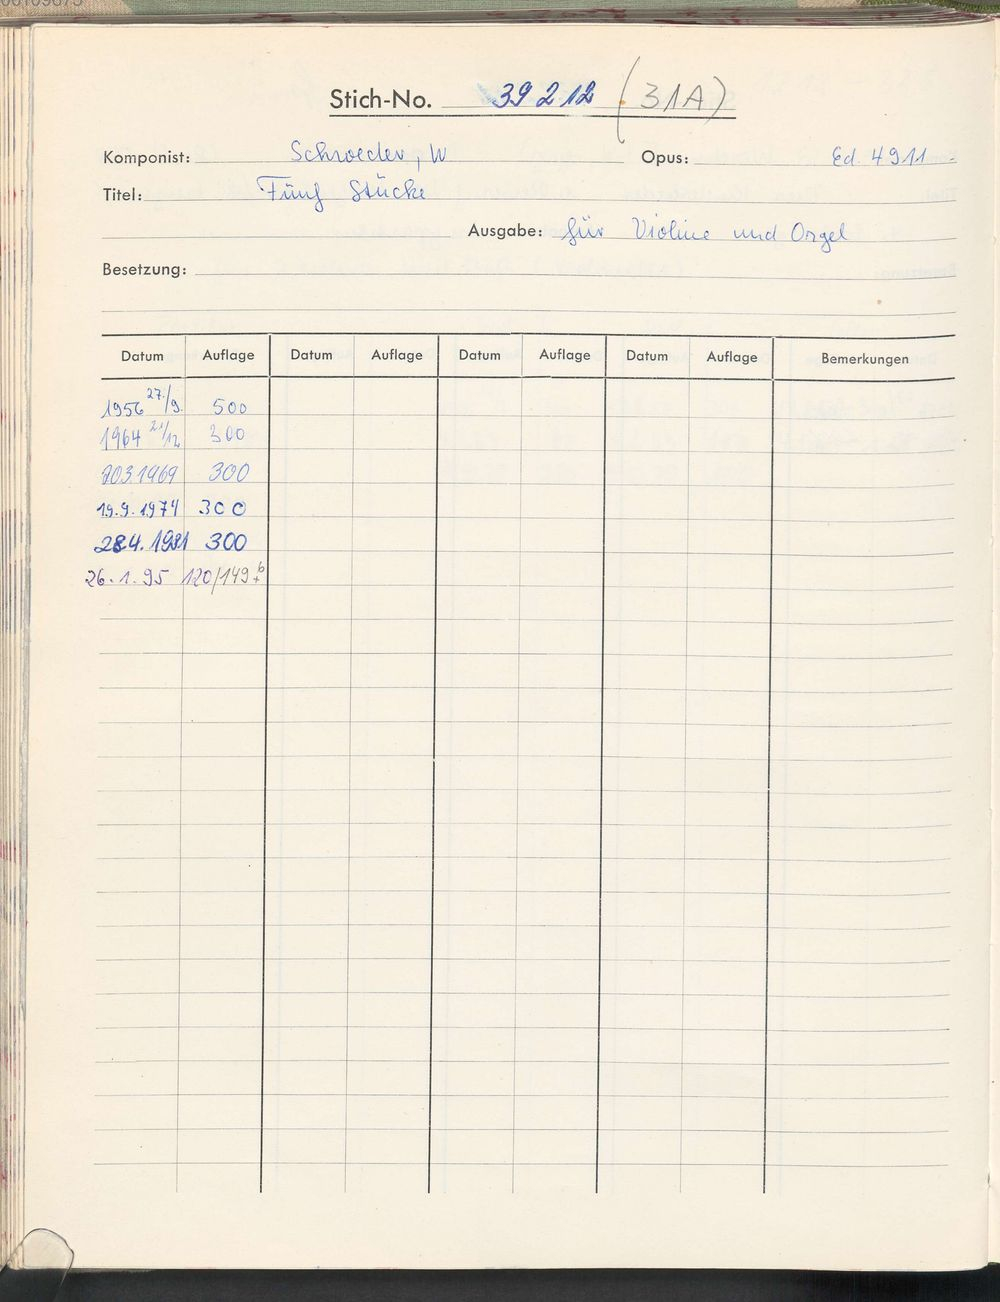 Stich-No. 39212 (31A)
Komponist: Schroeder, W Opus: Ed. 4911.-
Titel: Fünf Stücke
Ausgabe: für Violine und Orgel
Besetzung:
Datum Auflage Datum Auflage Datum Auflage Datum Auflage Bemerkungen
1956 27./9. 500
1964 21/12 300
1969 300
19.9.1974 300
28.4.1981 300
26.1.95 120/149 + b